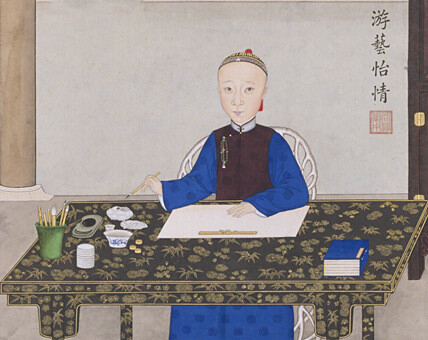 游藝怡情